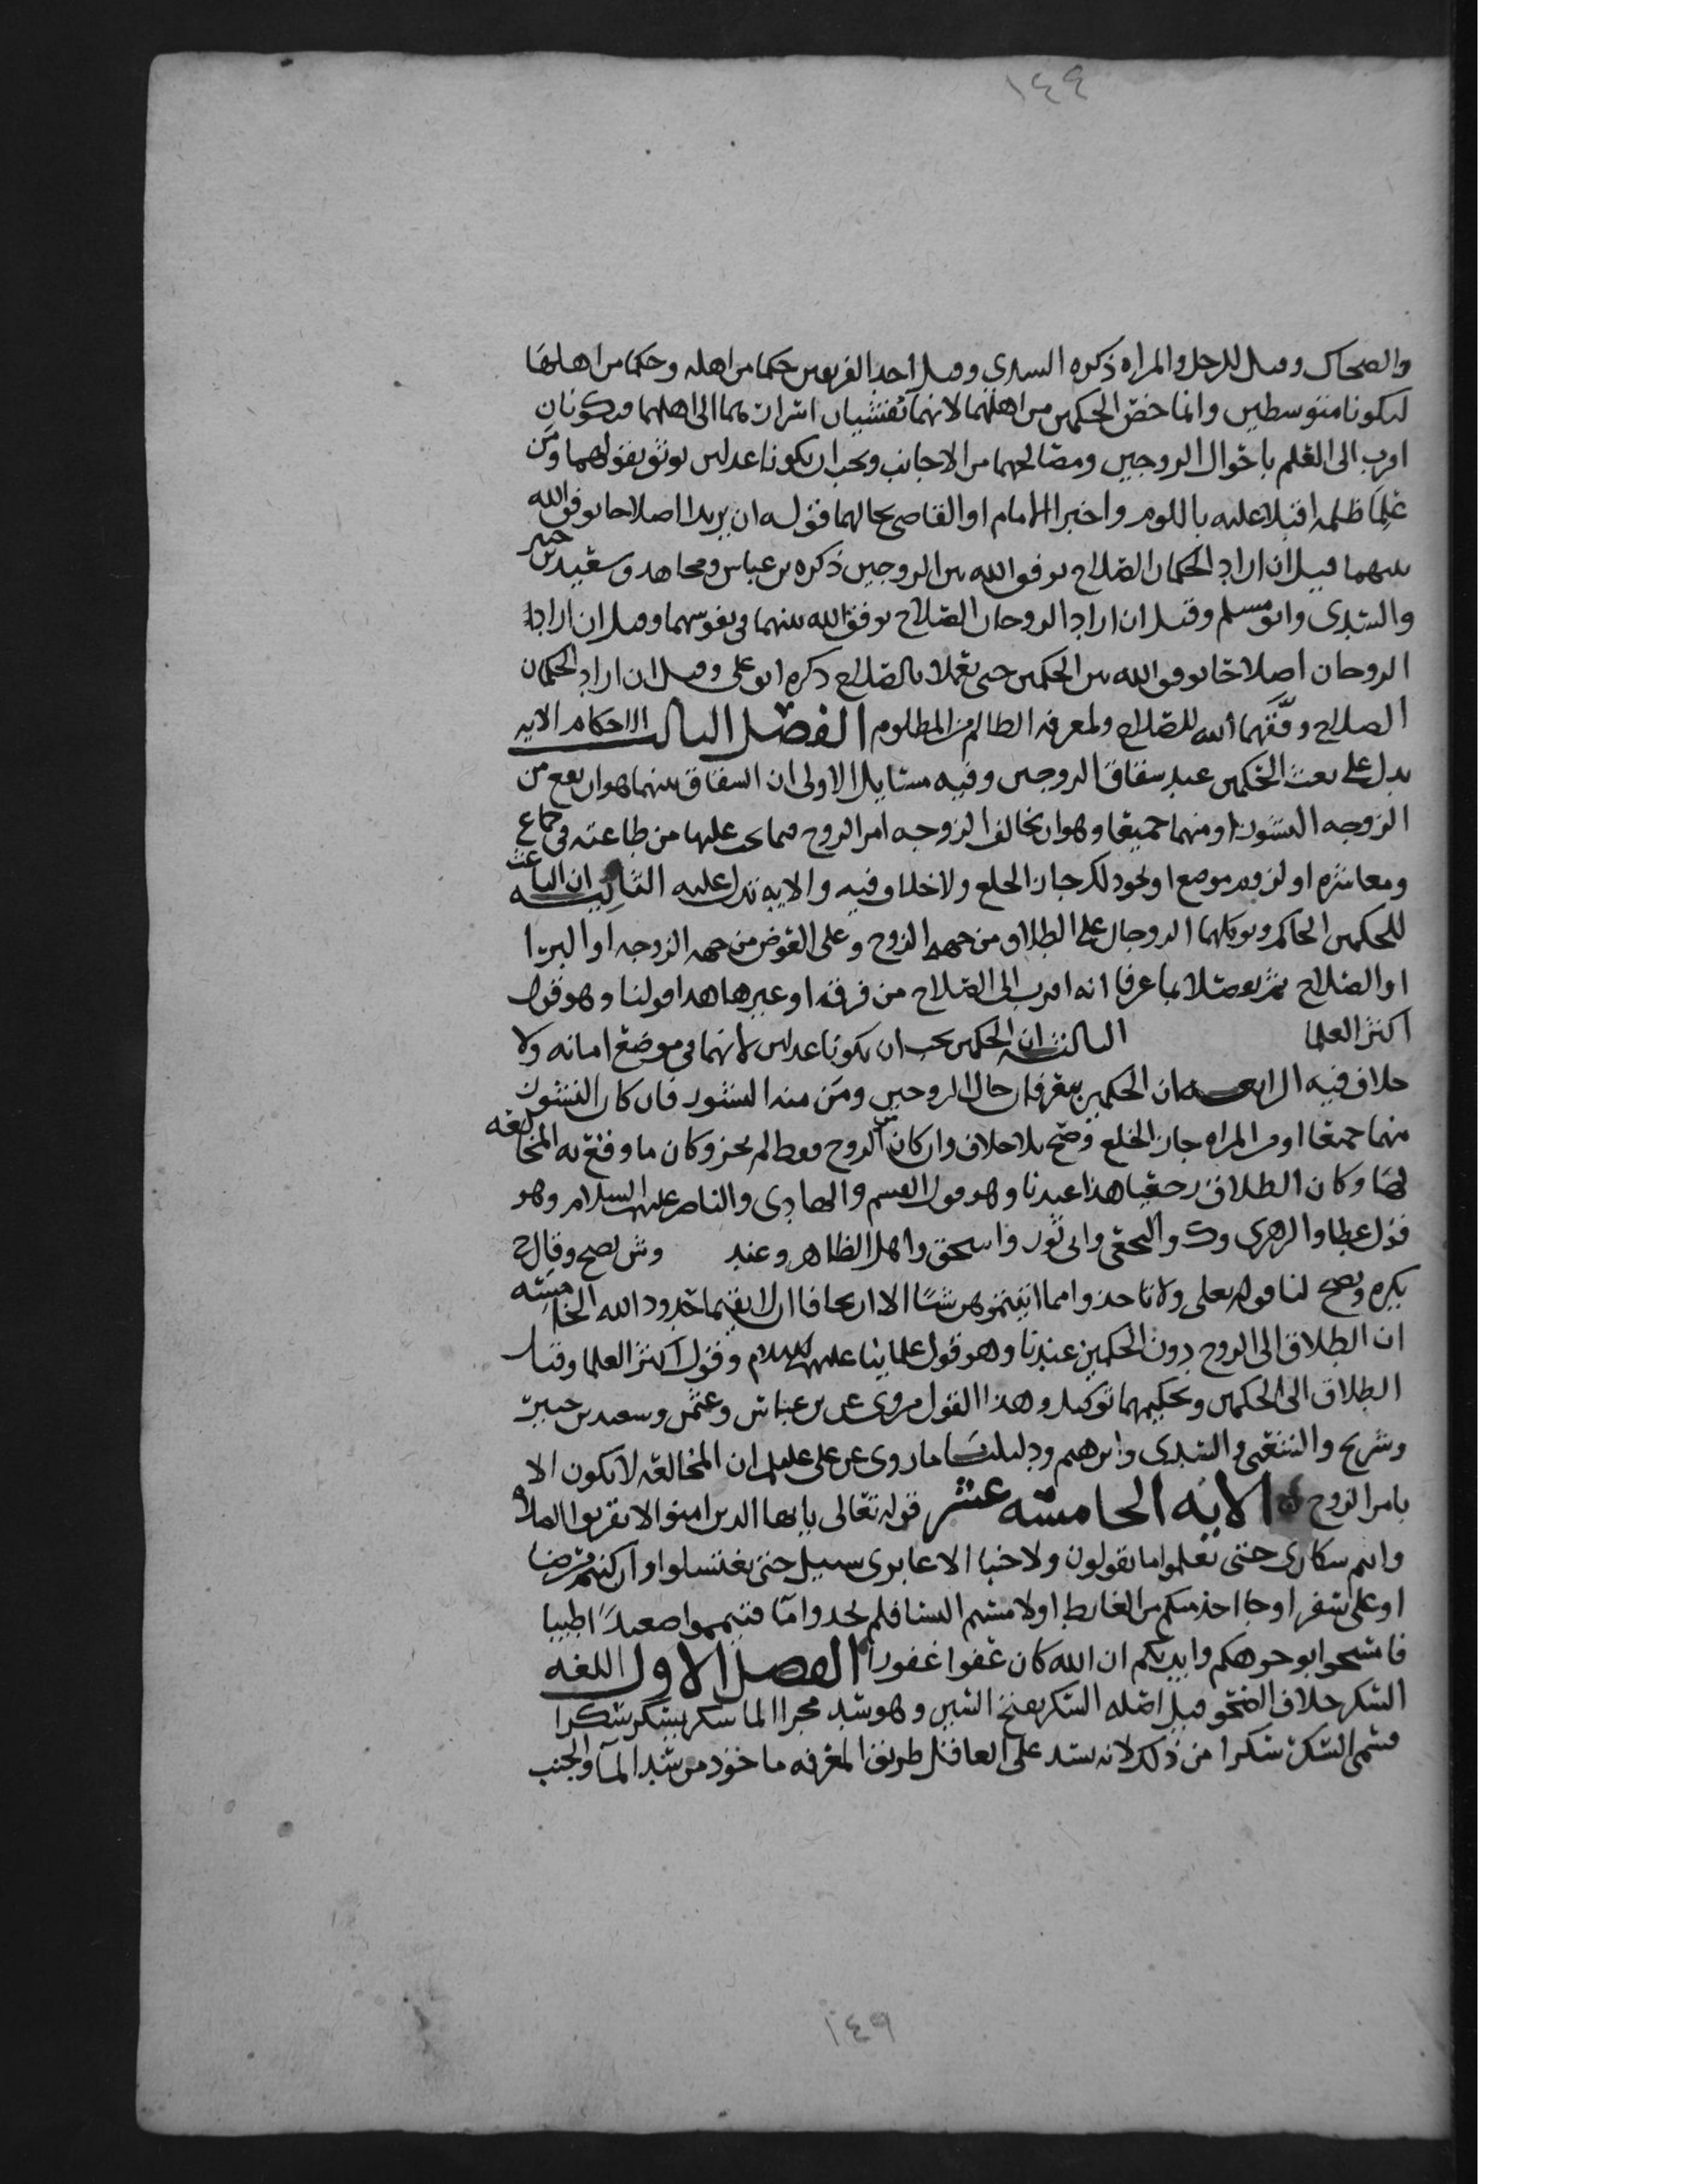 ١٤٩
والضحاك وقيل للرجل والمراه ذكره السدي وقيل احد الفريقين حكما من اهله وحكما من اهلها
ليكونا متوسطين وانما خص الحكمين من اهلهما لانهما تفشيان اسرارهما الى اهلهما فيكونان
اقرب الى العلم باحوال الزوجين ومصالحهما من الاجانب ويجب ان يكونا عدلين يوثق بقولهما ومن
علما ظلمه اقبلا عليه باللوم واخبرا الامام او القاضي بحالهما قوله ان يريدا اصلاحا يوفق الله
بينهما قيل ان اراد الحكمان الصلاح يوفق الله بين الزوجين ذكره بن عباس ومجاهد وسعيد بن جبير
والسدي وابو مسلم وقيل ان اراد الزوجان الصلاح يوفق الله بينهما في نفوسهما وقيل ان ارادا
الزوجان اصلاحا يوفق الله بين الحكمين حتى يعملا بالصلاح ذكره ابو علي وقيل ان اراد الحكمان
الصلاح وفقهما الله للصلاح ولمعرفه الظالم من المظلوم الفصل الثالث الاحكام الايه
يدل على بعث الحكمين عند شقاق الزوجين وفيه مسايل الاولى ان الشقاق بينهما هو ان يقع من
الزوجه النشوز او منهما جميعا وهو ان يخالف الزوجه امر الزوج فيما يجب عليها من طاعته في جماع
ومعاشره او لزوم موضع او نحو ذلك جاز الخلع ولا خلاف فيه والايه تدل عليه الثانيه ان الباعث
للحكمين الحاكم ويوكلهما الزوجان على الطلاق من جهه الزوج وعلى العوض من جهه الزوجه او البريا
او الصلاح ثم يوصلا بما عرفا انه اقرب الى الصلاح من فرقه او غيرها هذا قولنا وهو قول
اكثر العلما الثالثه ان الحكمين يجب ان يكونا عدلين لانهما في موضع امانه ولا
خلاف فيه الرابعه ان الحكمين يعرفان حال الزوجين ومن منه النشوز فان كان النشوز
منهما جميعا او من المراه جاز الخلع وصح بلا خلاف وان كان من الزوج فقط لم يجز وكان ما وقع به المخالعه
لها وكان الطلاق رجعيا هذا عندنا وهو قول القسم والهادي والناصر عليهم السلام وهو
قول عطا والزهري وك والنخعي وابي ثور واسحق واهل الظاهر وعند وش يصح وقال ح
يكره ويصح لنا قوله تعلى ولا تاخذوا مما اتيتموهن شيئا الا ان يخافا ان لا يقيما حدود الله الخامسه
ان الطلاق الى الزوج دون الحكمين عندنا وهو قول علماينا عليهم السلام وقول اكثر العلما وقيل
الطلاق الى الحكمين وتحكيمهما توكيل وهذا القول مروي عن بن عباس وعثمن وسعيد بن جبير
وشريح والشعبي والسدي وابرهيم ودليلنا ما روي عن علي عليلم ان المخالعه لا يكون الا
بامر الزوج الايه الخامسه عشر قوله تعالى يايها الذين امنوا لا تقربوا الصلاه
وانتم سكارى حتى تعلموا ما تقولون ولا جنبا الا عابري سبيل حتى تغتسلوا وان كنتم مرضى
او على سفر او جا احد منكم من الغايط او لامستم النسا فلم تجدوا ما فتيمموا صعيدا طيبا
فامسحوا بوجوهكم وايديكم ان الله كان عفوا غفورا الفصل الاول اللغه
السكر خلاف الصحو قيل اصله السكر بفتح السين وهو شد مجرا الما سكر يسكر سكرا
فسمي السكر سكرا من ذلك لانه يسد على العاقل طريق المعرفه ماخوذ من سد الما والجنب
١٤٩